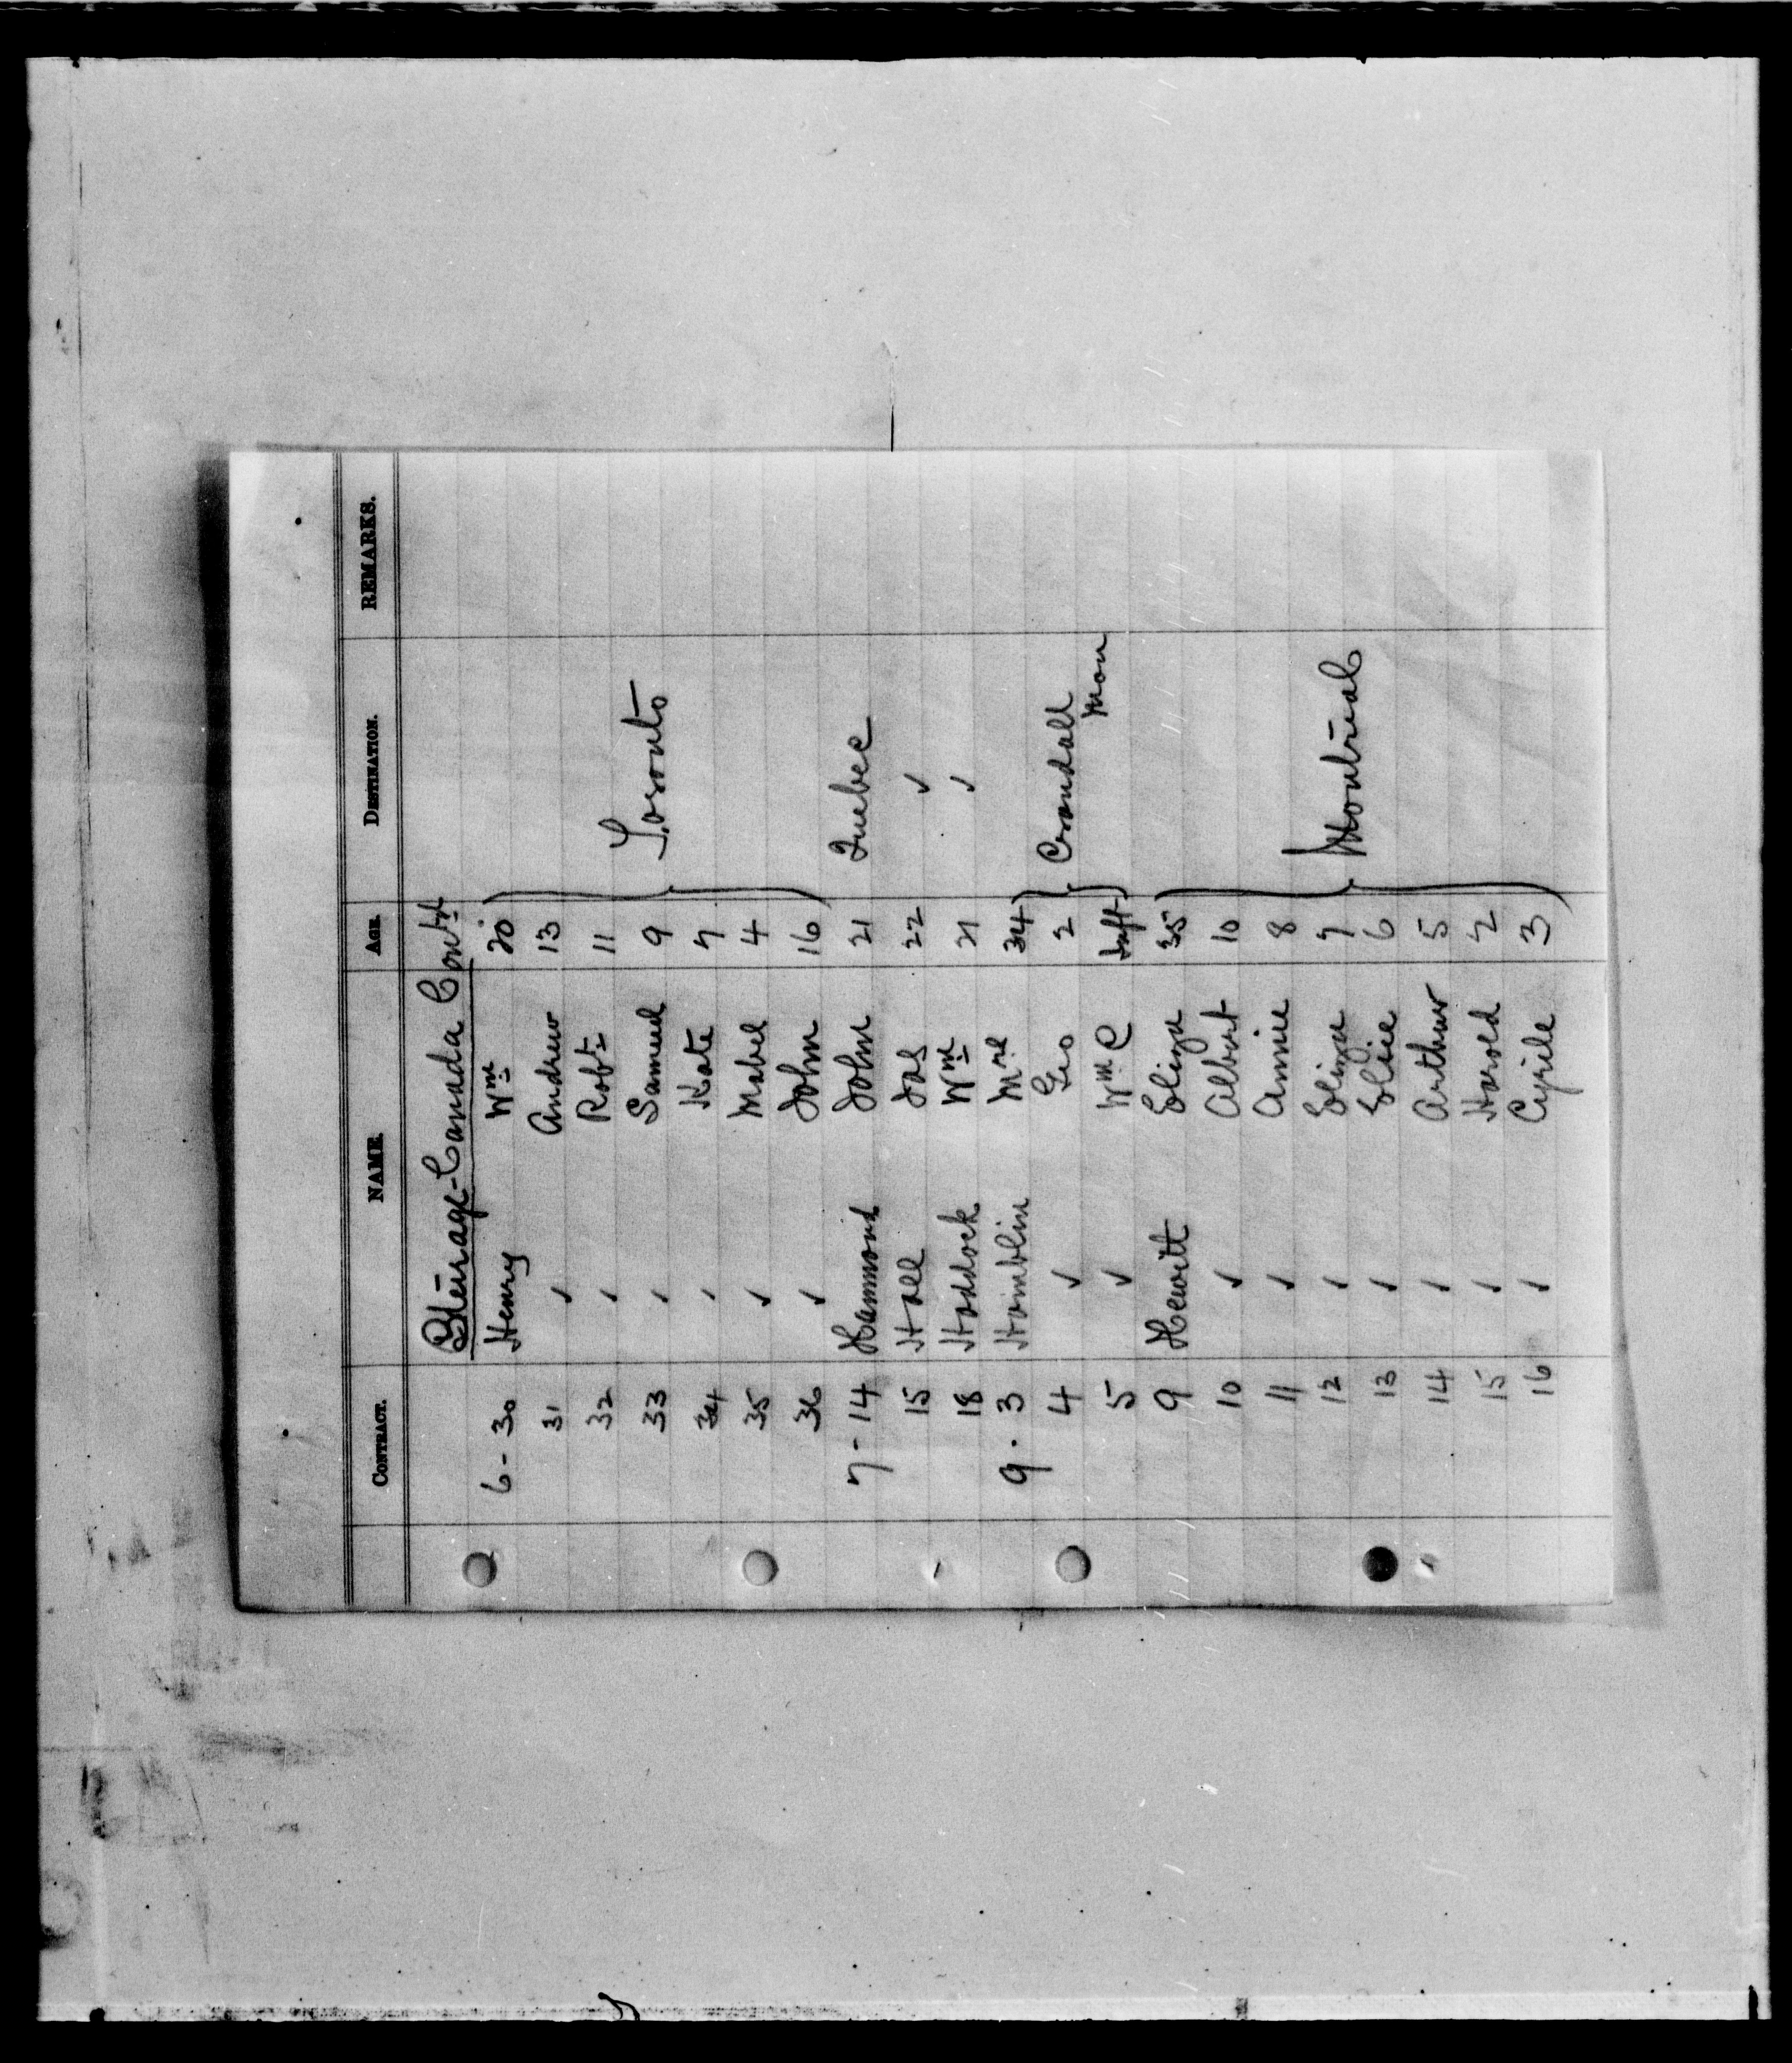 CONTRACT. NAME. AGE. DESTINATION. REMARKS.
Steerage-Canada Contd
6-30 Henry Wm 20
31 ✓ Andrew 13
32 ✓ Robt 11
33 ✓ Samuel 9 Toronto
34 ✓ Kate 7
35 ✓ Mabel 4
36 ✓ John 16
7-14 Hammond John 21 Quebec
15 Hall Jas 22 ✓
18 Haddock Wm 21 ✓
9.3 Hamblin Mrs 34
4 ✓ Geo 2 Crandall
5 ✓ Wm C Inft Man
9 Hewitt Eliza 35
10 ✓ Albert 10
11 ✓ Annie 8
12 ✓ Eliza 7 Montreal
13 ✓ 6
14 ✓ Arthur 5
15 ✓ Harold 2
16 ✓ Cyrile 3